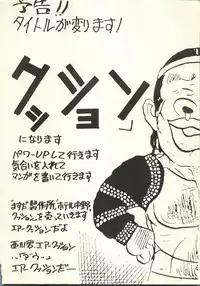 予告!!
タイトルが変ります!
クッション
になります
パワーUPして行きます
気合いを入れて
マンガを書いて行きます
クッションを売っていきます
エアークッションだよ
エアークッション
エアークッションだー